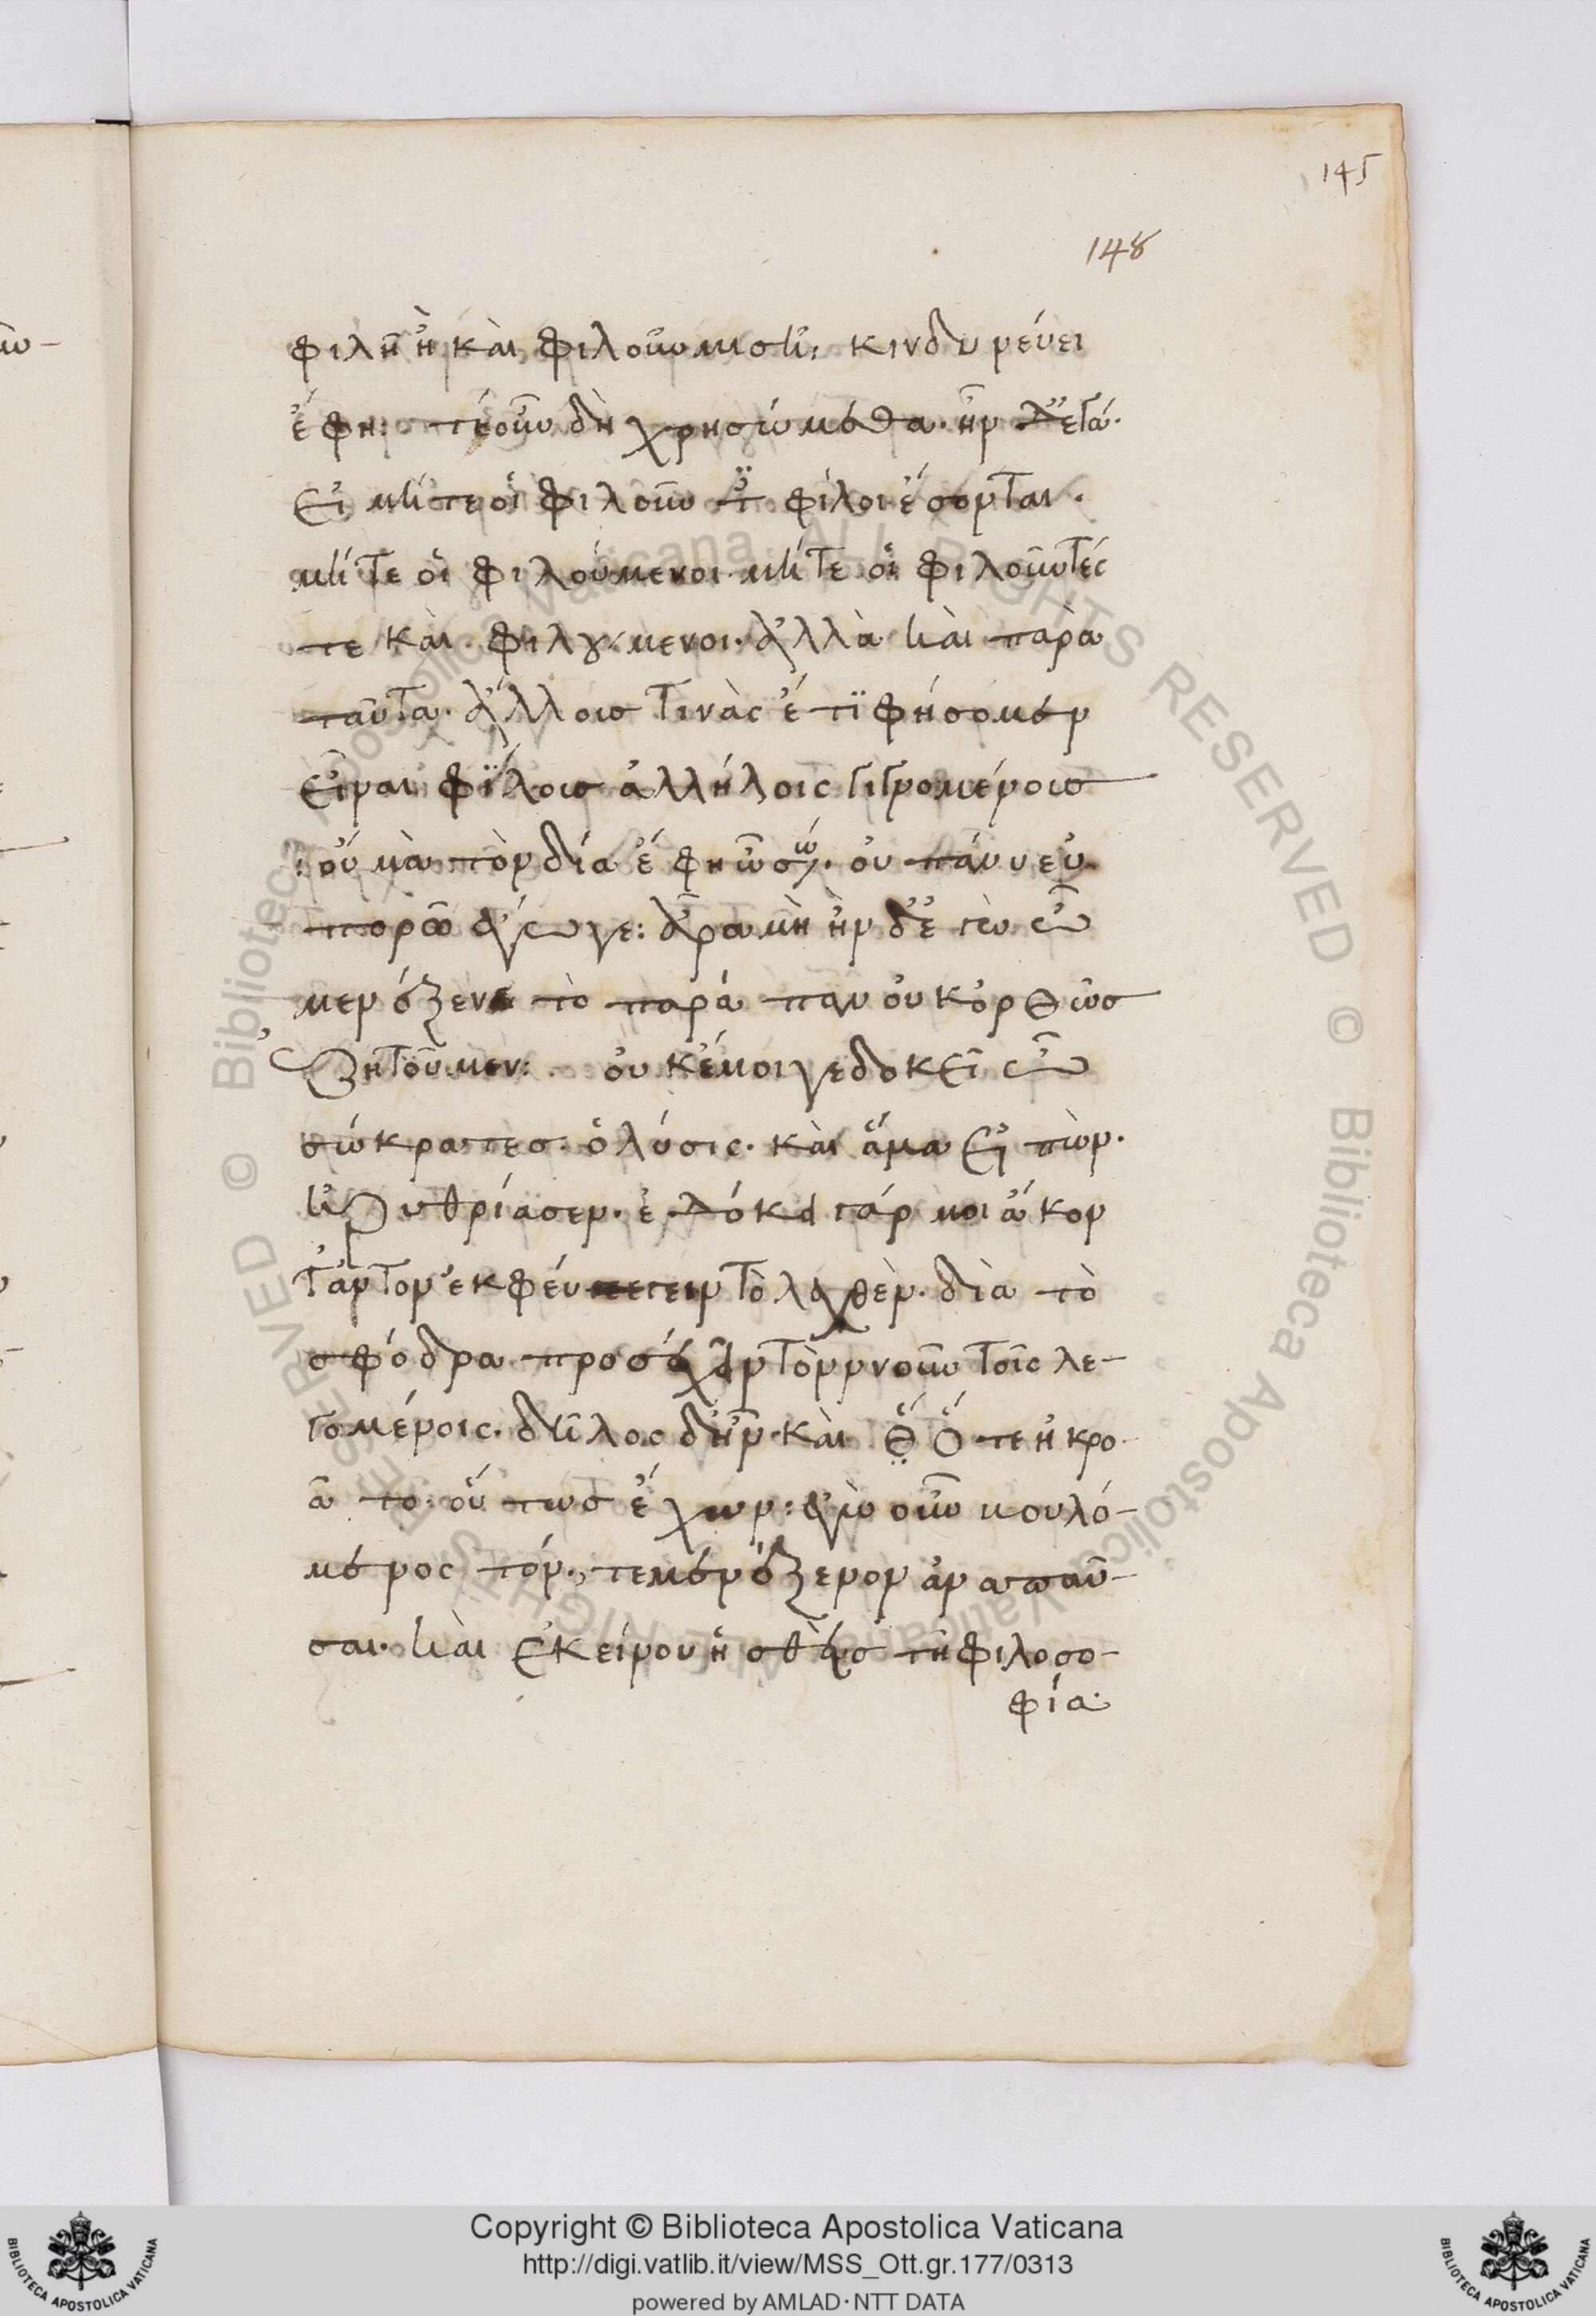 145
148
φιλῆ ἢ καὶ φιλοῦν μισῆ, κινδυνεύει
ἔφη: τί οὖν δὴ χρησώμεθα. ἦν δ' ἐγώ.
εἰ μήτε οἱ φιλοῦντες φίλοι ἔσονται.
μήτε οἱ φιλούμενοι μήτε οἱ φιλοῦντές
τε καὶ φιλούμενοι. ἀλλὰ καὶ παρὰ
ταῦτα. ἄλλους τινὰς ἔτι φήσομεν
εἶναι φίλους ἀλλήλοις γιγνομένους
: οὐ μὰ τὸν δία ἔφη ὦ σώ. οὐ πάνυ εὐ
πορῶ ἔγωγε: ἆρα μὴ ἦν δ' ἐγὼ ὦ
μενέξενε τὸ παράπαν οὐκ ὀρθῶς
ἐζητοῦμεν: οὐκ ἔμοιγε δοκεῖ ὦ
σώκρατες. ὁ λύσις. καὶ ἅμα εἰπὼν.
ἠρυθρίασεν. ἐδόκει γάρ μοι ἄκον
τ' αὐτὸν ἐκφεύγειν τὸ λεχθὲν. διὰ τὸ
σφόδρα προσέχειν τὸν νοῦν τοῖς λε-
γομένοις. δῆλος δ' ἦν. καὶ ὅτε ἠκρο
ᾶτο οὕτως ἔχων: ἐγὼ οὖν βουλό-
μενος τόν, τε μενέξενον ἀναπαῦ-
σαι. καὶ ἐκείνου ἡσθεὶς τῆ φιλοσο-
φία.
Copyright © Biblioteca Apostolica Vaticana
http://digi.vatlib.it/view/MSS_Ott.gr.177/0313
powered by AMLAD·NTT DATA